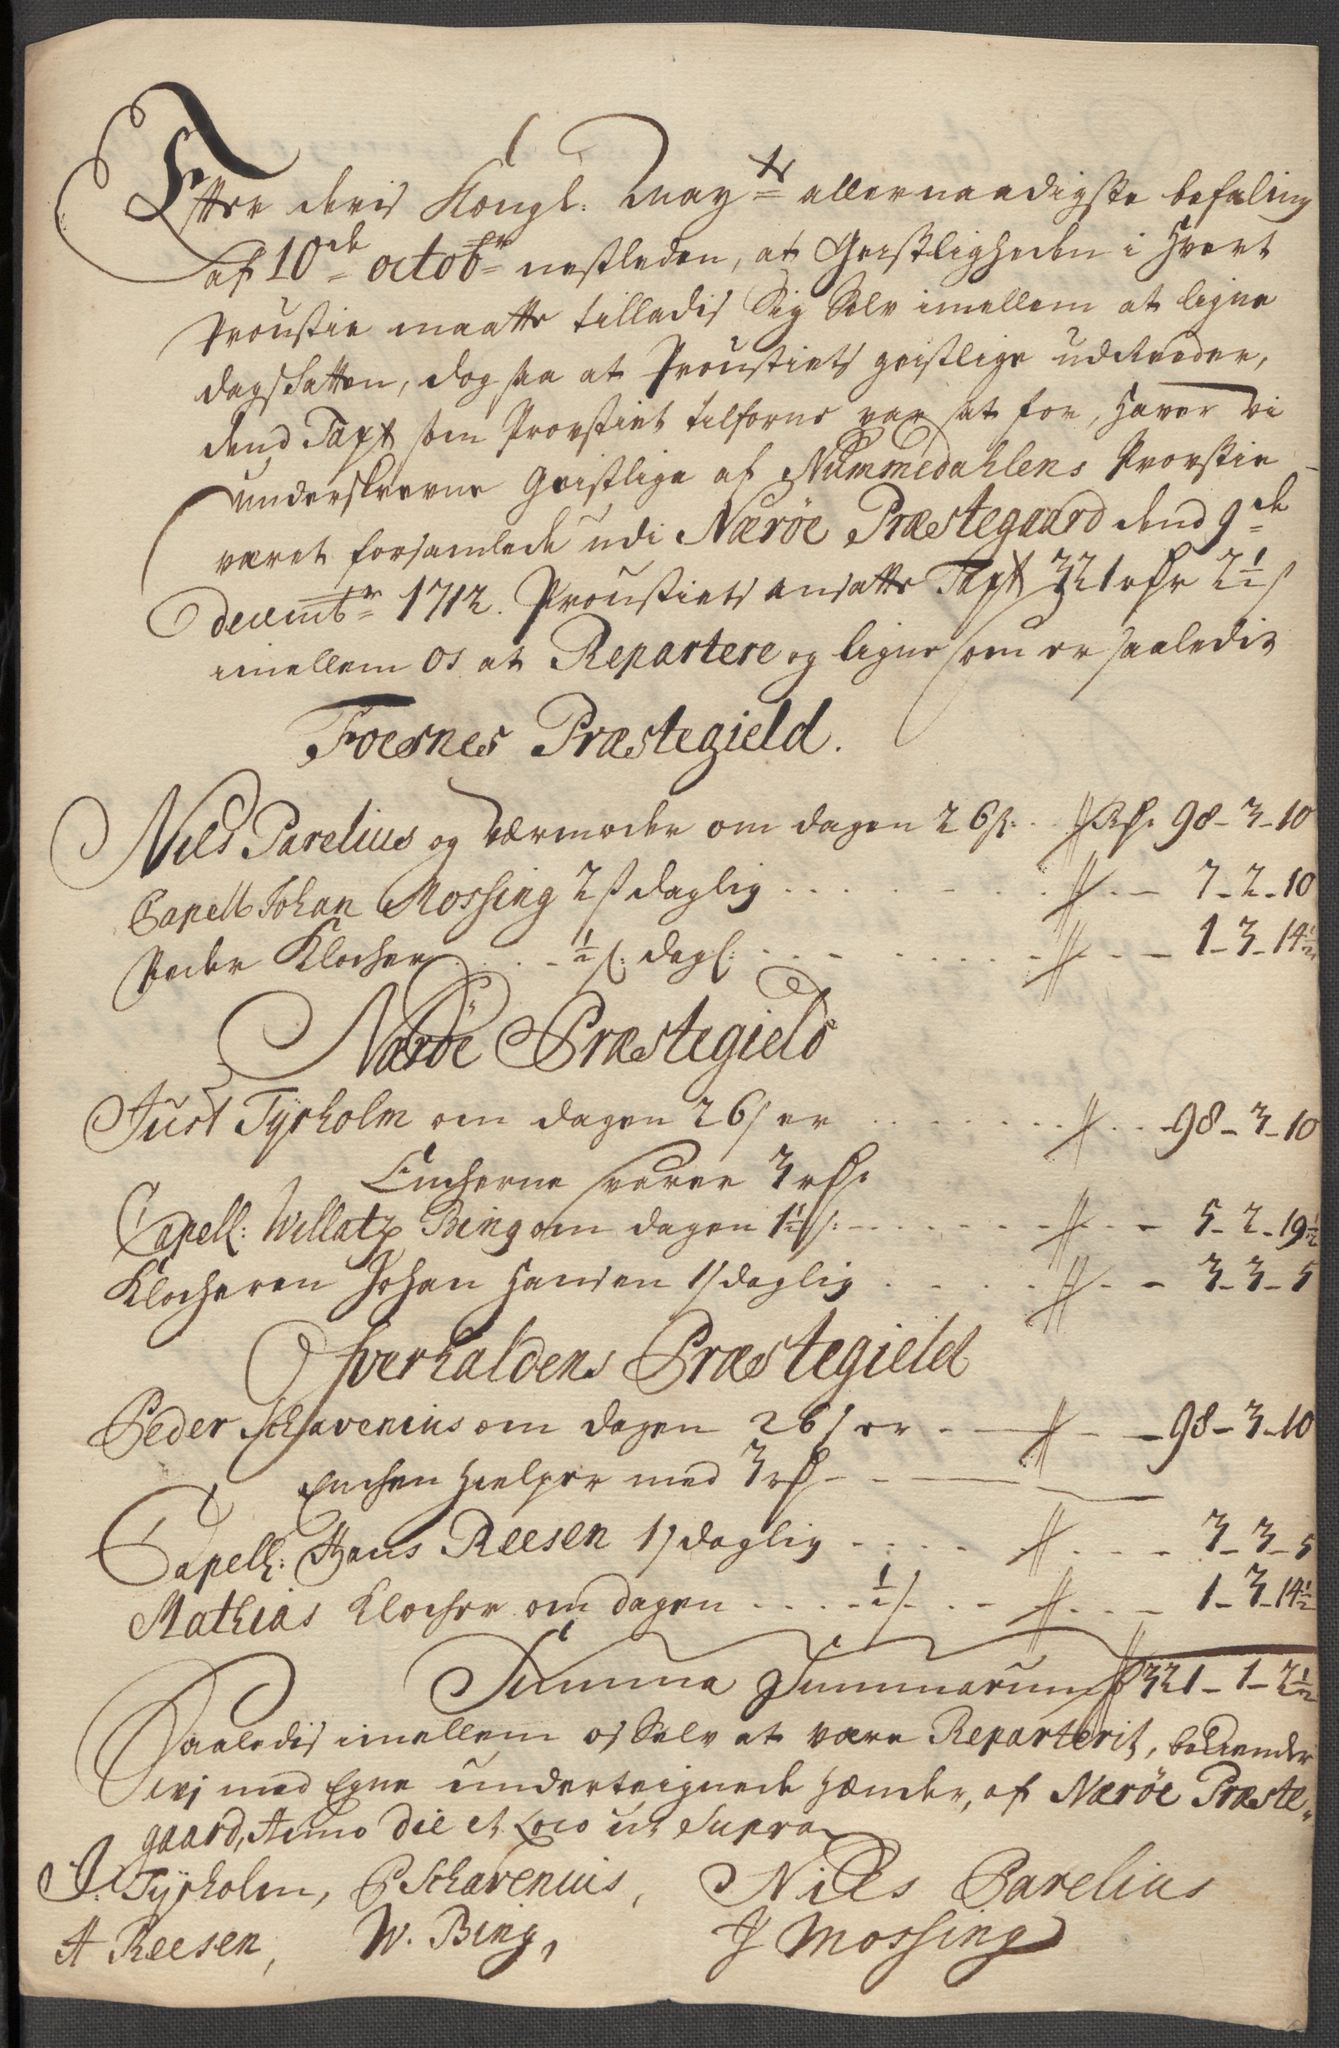 Efter deris Kongl: May:ts allernaadigste befaling
af 10de octobr nestleden, at Geistligheden i Hvert
Proustie maatte tilladis Sig Selv imellem at ligne
dagskatten, dog saa at Proustiets geistlige udreeder,
dend Taxt som Provstiet tilforne var sat for, Haver Vi
underskrevne Geistlige af Nummedahlens Provstie
været forsamlede udi Næröe Præstegaard dend 9de
decembr 1712. Proustiets ansatte Taxt 321 rdr 2½ s
imellem os at Repartere og ligne som er saaledis
Foesnes Præstegield.
Niels Parelius og Værmoder om dagen 26 s: . . Rdr. 98-3-10
Capell Johan Mossing 2 s daglig . . . . 7-2-10
Peder Klocher . . . ½ s: dagl: . . . . 1-3-14½
Næröe Præstegield
Just Tÿrholm om dagen 26 s er . . . . 98-3-10
Encherne svarer 3 rdr
Capell: Willatz Bing om dagen 1½ s: . . . . 5-2-19½
Klocheren Johan Hansen 1 s daglig . . . . 3-3-5
Ofverhaldens Præstegield
Peder Schavenius om dagen 26 s er - - 98-3-10
Enchen Hielper med 3 rdr - -
Capell: Hans Reesen 1 s daglig . . . . 3-3-5
Mathias Klocher om dagen . . . . ½ s . . . 1-3-14½
Summa Summarum 321-1-2½
Saaledis imellem os Selv at være Reparterit, bekiender
wi med Egne underteignede Hænder, af Næröe Præste-
gaard, Anno die et Loco ut Supra
J: Tÿrholm, P Schavenius, Niels Parelius
H Reesen, W. Bing, J Mossing